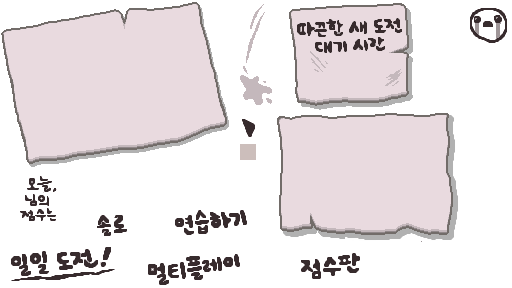 따끈한 새 도전
대기 시간
오늘,
님의
점수는
솔로
연습하기
일일 도전!
멀티플레이
점수판